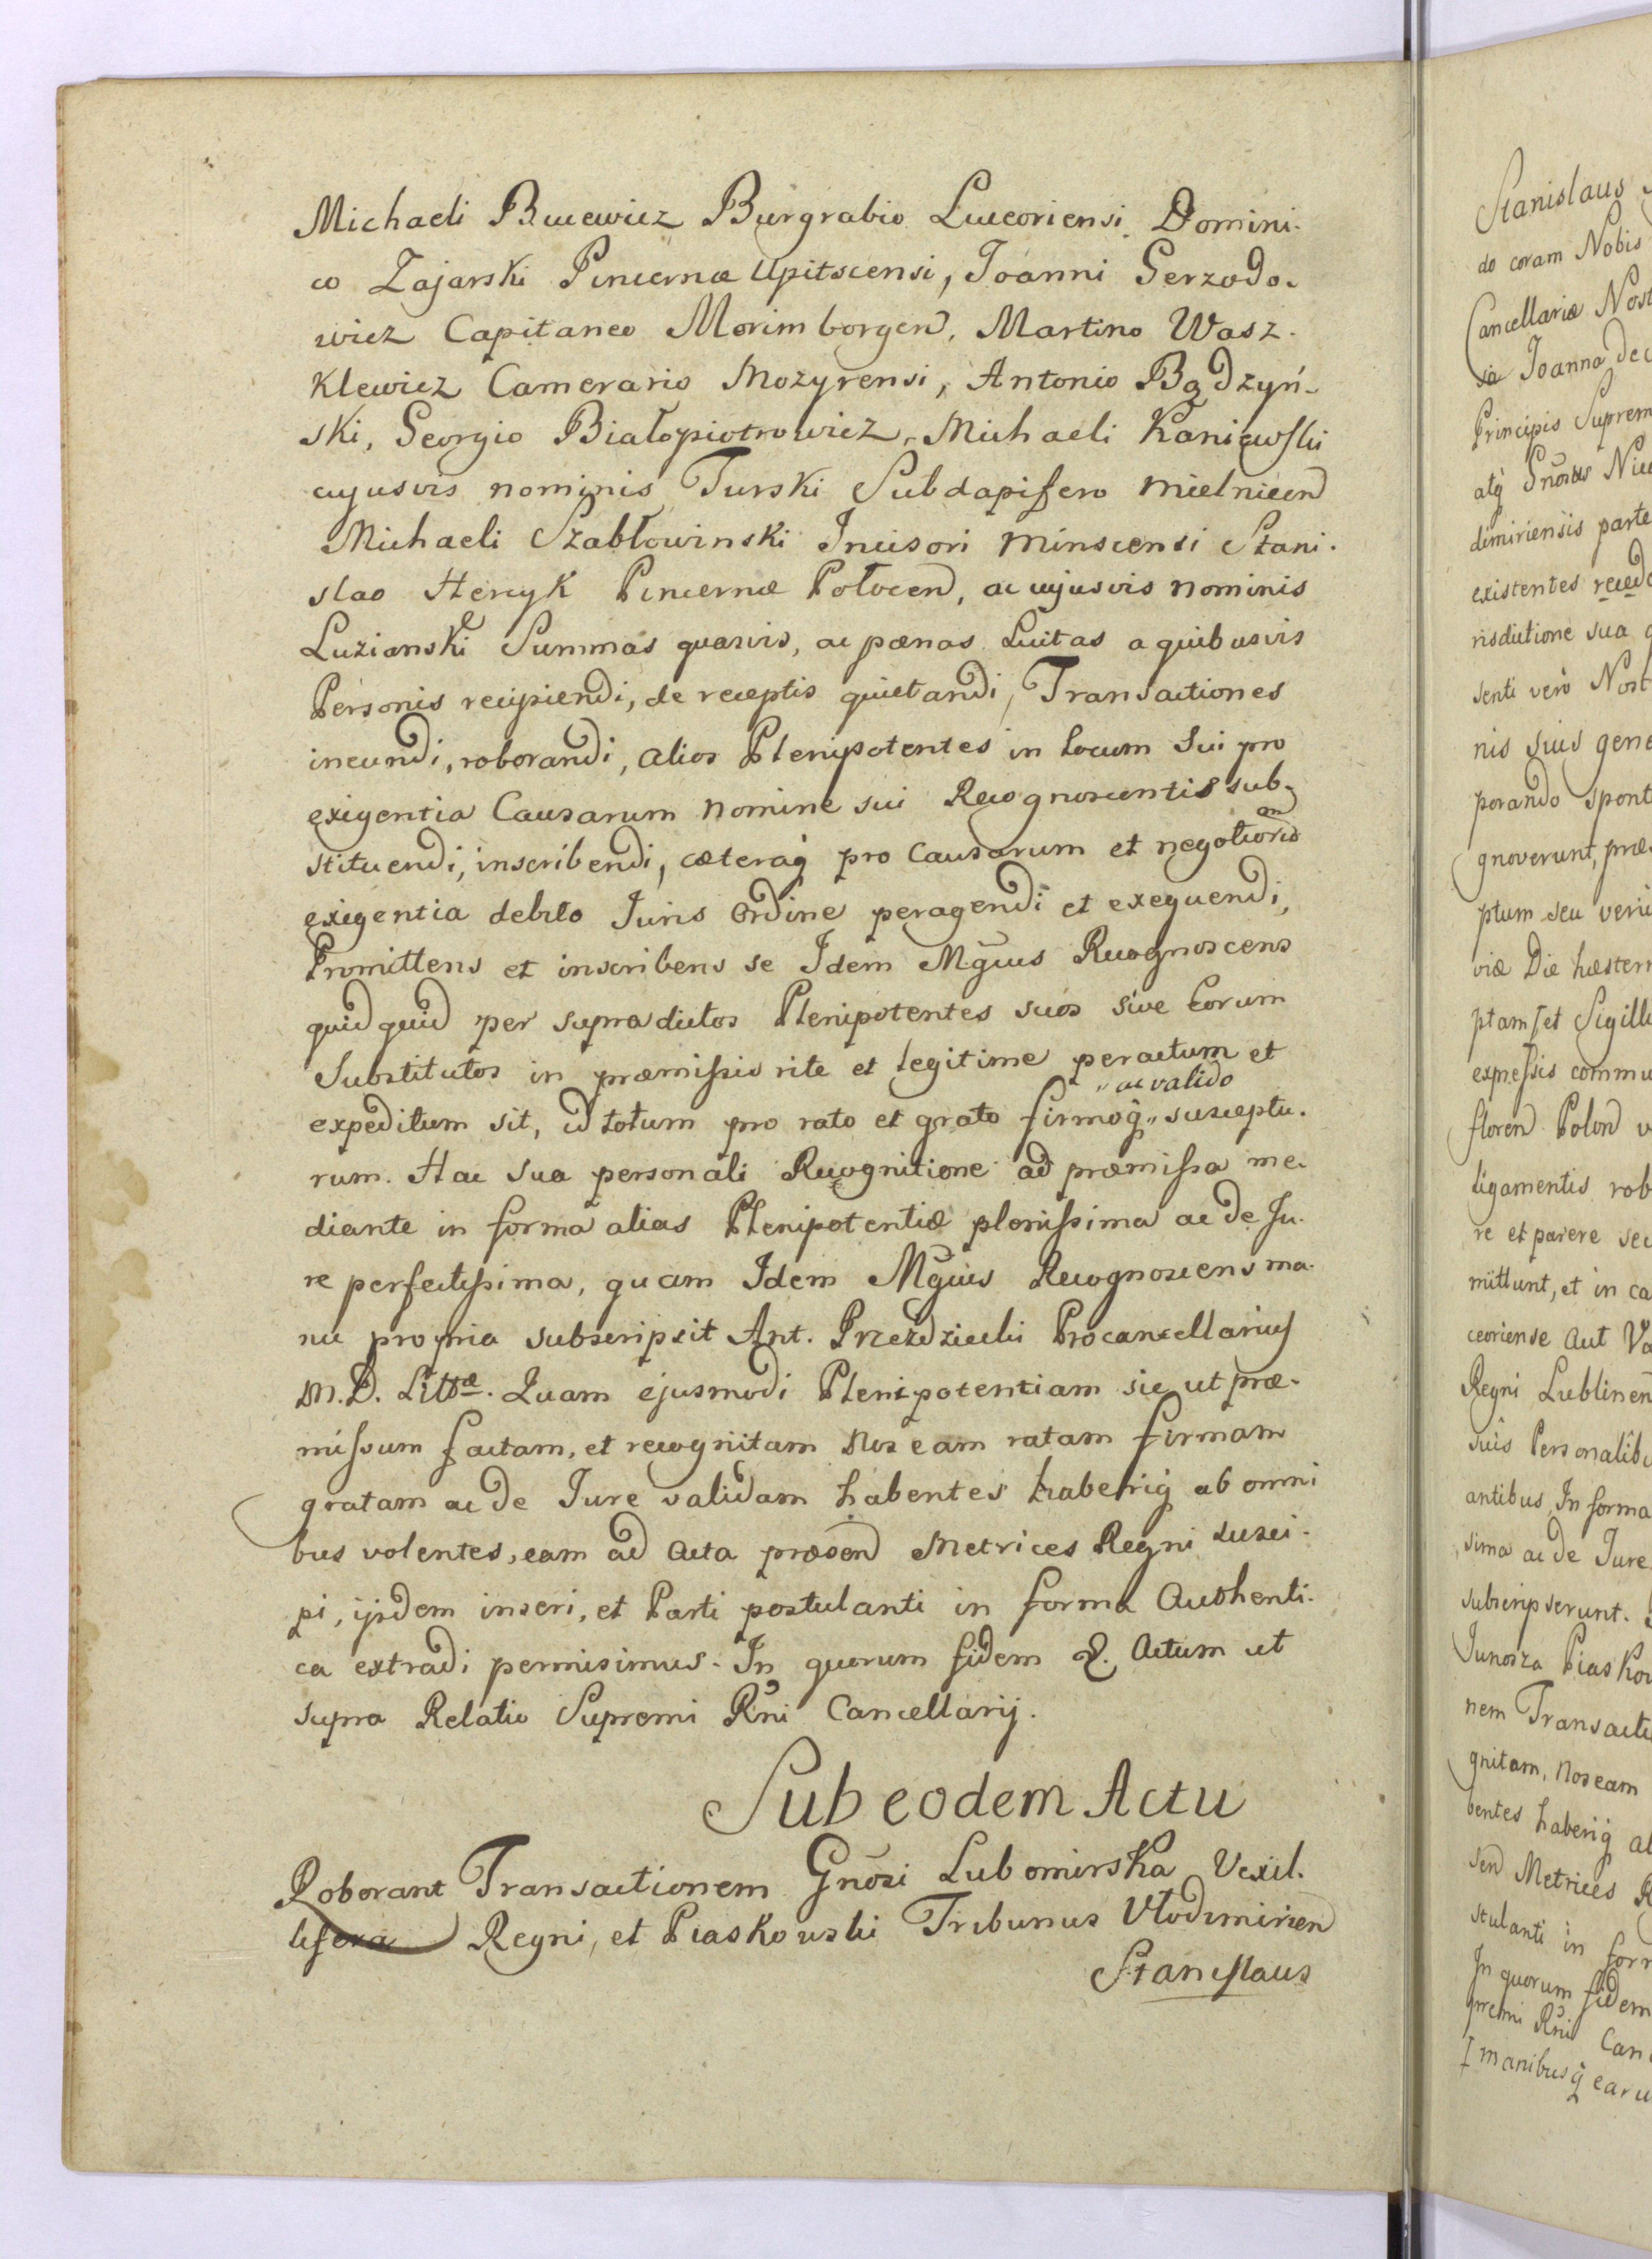 Michaeli Bucewicz Burgrabio Luceoriensi, Domini-
co Zajarski Pincernæ Upitscensi, Joanni Gerzodo-
wicz Capitaneo Morimborgen, Martino Wasz-
klewicz Camerario Mozyrensi, Antonio Bądzyń-
ski, Georgio Białopiotrowicz, Michaeli Kaniewski
cujusvis nominis Turski Subdapifero Mielnicen
Michaeli Szabłowinski Incisori Minscensi Stani-
slao Hercyk Pincernæ Połocen, ac cujusvis nominis
Luzianski Summas quasvis, ac pænas luitas a quibusvis
Personis recipiendi, de receptis quietandi, Transactiones
ineundi, roborandi, alios Plenipotentes in locum sui pro
exigentia Causarum nomine sui Recognoscentis sub-
stituendi, inscribendi, cæteraq pro Causarum et negotiorum
exigentia debito Juris ordine peragendi et exequendi,
Promittens et inscribens se Idem Mgcus Recognoscens
quidquid per supradictos Plenipotentes suos sive Eorum
Substitutos in præmissis rite et legitime peractum et
expeditum sit, id totum pro rato et grato firmoq " ac valido " susceptu-
rum. Hac sua personali Recognitione ad præmissa me-
diante in forma alias Plenipotentiæ plenissima ac de Ju-
re perfectissima, quam Idem Mgcus Recognoscens ma-
nu propria subscripsit Ant. Przezdziecki Procancellarius
M. D. Littæ. Quam ejusmodi Plenipotentiam sic ut præ-
missum factam, et recognitam Nos eam ratam firmam
gratam ac de Jure validam habentes haberiq ab omni
bus volentes, eam ad Acta præsen Metrices Regni susci-
pi, ijsdem inseri, et Parti postulanti in forma Authenti-
ca extradi permisimus. In quorum fidem &. Actum ut
supra Relatio Supremi Rni Cancellarij.
Sub eodem Actu
Roborant Transactionem Gnosi Lubomirska Vexil-
lifera Regni, et Piaskowski Tribunus Vlodimirien
Stanislaus
Stanislaus
do coram Nobis
Cancellariæ Nost
Joanna de
Principis Suprem
atq
dimiriensis parte
existentes
risdictione sua
senti vero Nost
nis suis gene
porando spont
gnoverunt, præ
ptum seu
viæ Die hæstern
ptam et Sigill
expressis commu
floren Polon
ligamentis rob
re et parere
mittunt, et in ca
ceoriense aut
Regni Lublinen
suis Personalib
antibus, In forma
sima ac de Jure
subscripserunt.
Junosza Piasko
nem Transacti
gnitam, Nos eam
bentes haberiq
sen Metrices
stulanti in for
In quorum fidem
premi Rni Can
manibusq earu